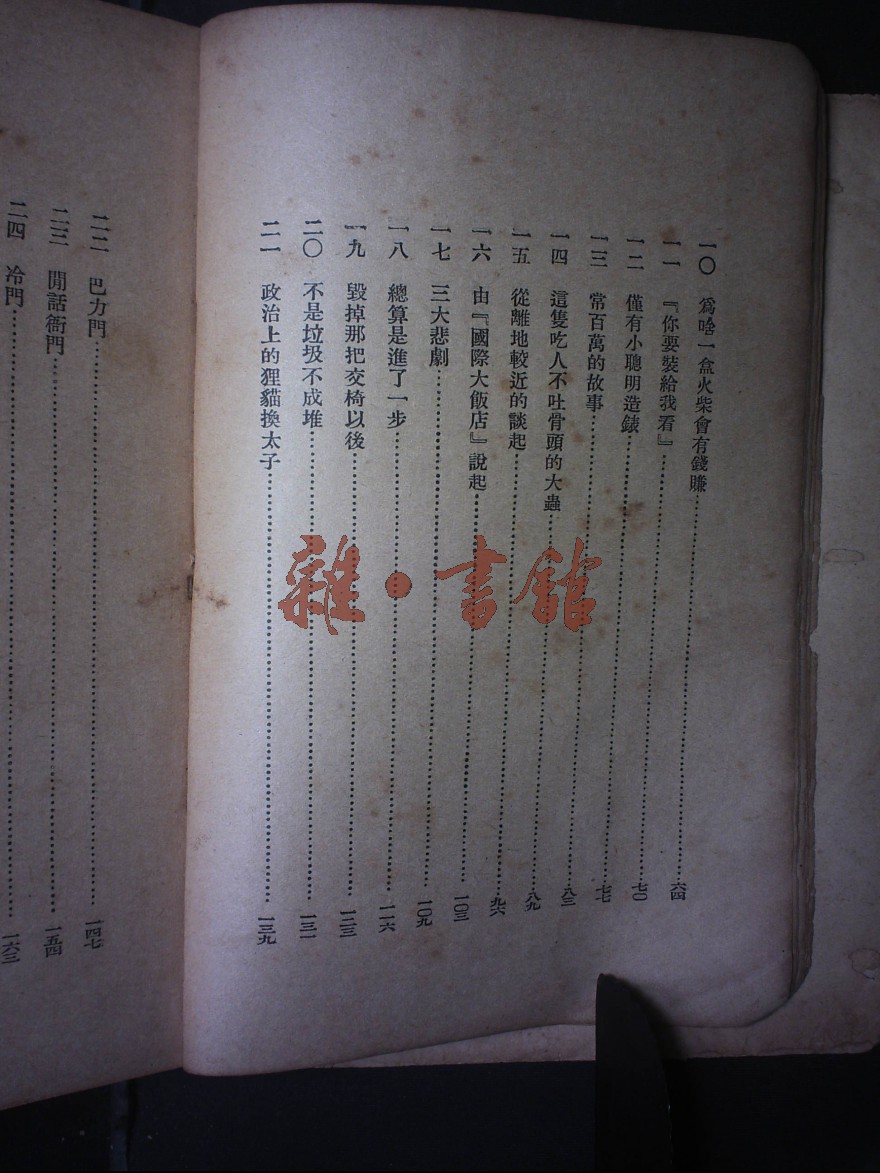 一〇 爲啥一盒火柴會有錢賺 六四
一一 『你要裝給我看』 七〇
一二 僅有小聰明造錶 七七
一三 常百萬的故事 八三
一四 這隻吃人不吐骨頭的大蟲 八九
一五 從離地較近的談起 九六
一六 由『國際大飯店』說起 一〇三
一七 三大悲劇 一〇九
一八 總算是進了一步 一一六
一九 毀掉那把交椅以後 一二三
二〇 不是垃圾不成堆 一三一
二一 政治上的狸貓換太子 一三九
二二 巴力門 一四七
二三 閒話衙門 一五四
二四 冷門 一六三
雜·書館